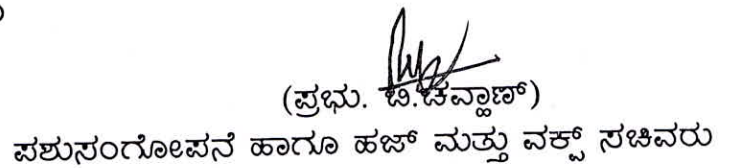 (ಪ್ರಭು. ಬಿ.ಚವ್ಹಾಣ್)
ಪಶುಸಂಗೋಪನೆ ಹಾಗೂ ಹಜ್ ಮತ್ತು ವಕ್ಫ್ ಸಚಿವರು